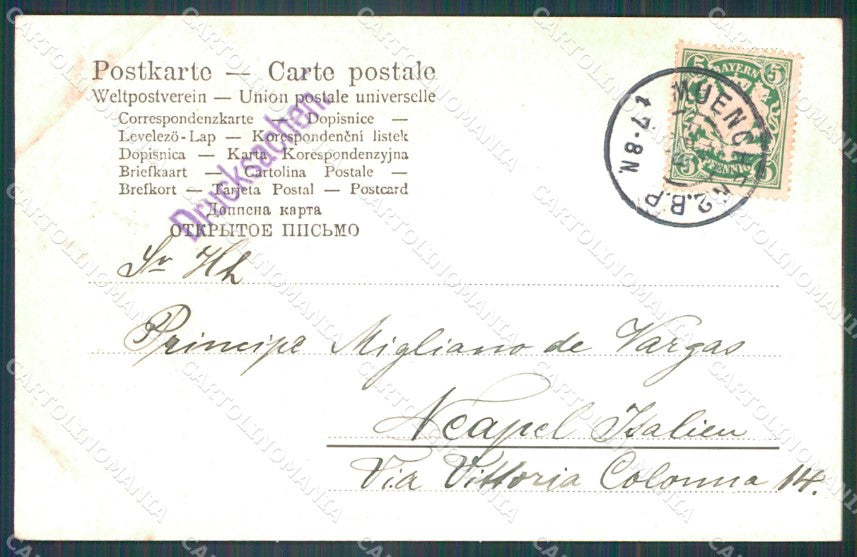 Postkarte — Carte postale
Weltpostverein — Union postale universelle
Correspondenzkarte — Dopisnice —
Levelezö-Lap — Korespondenční listek
Dopisnica — Karta Korespondenzyjna
Briefkaart — Cartolina Postale —
Brefkort — Tarjeta Postal — Postcard
Дописна карта
ОТКРЫТОЕ ПИСЬМО
Drucksachen.
BAYERN
5 5
5 5
PFENNIG
MUENCHEN 2.B.P.
7-8 N.
Sr Hh
Principe Migliano de Vargas
Neapel Italien
Via Vittoria Colonna 14.
CARTOLINOMANIA